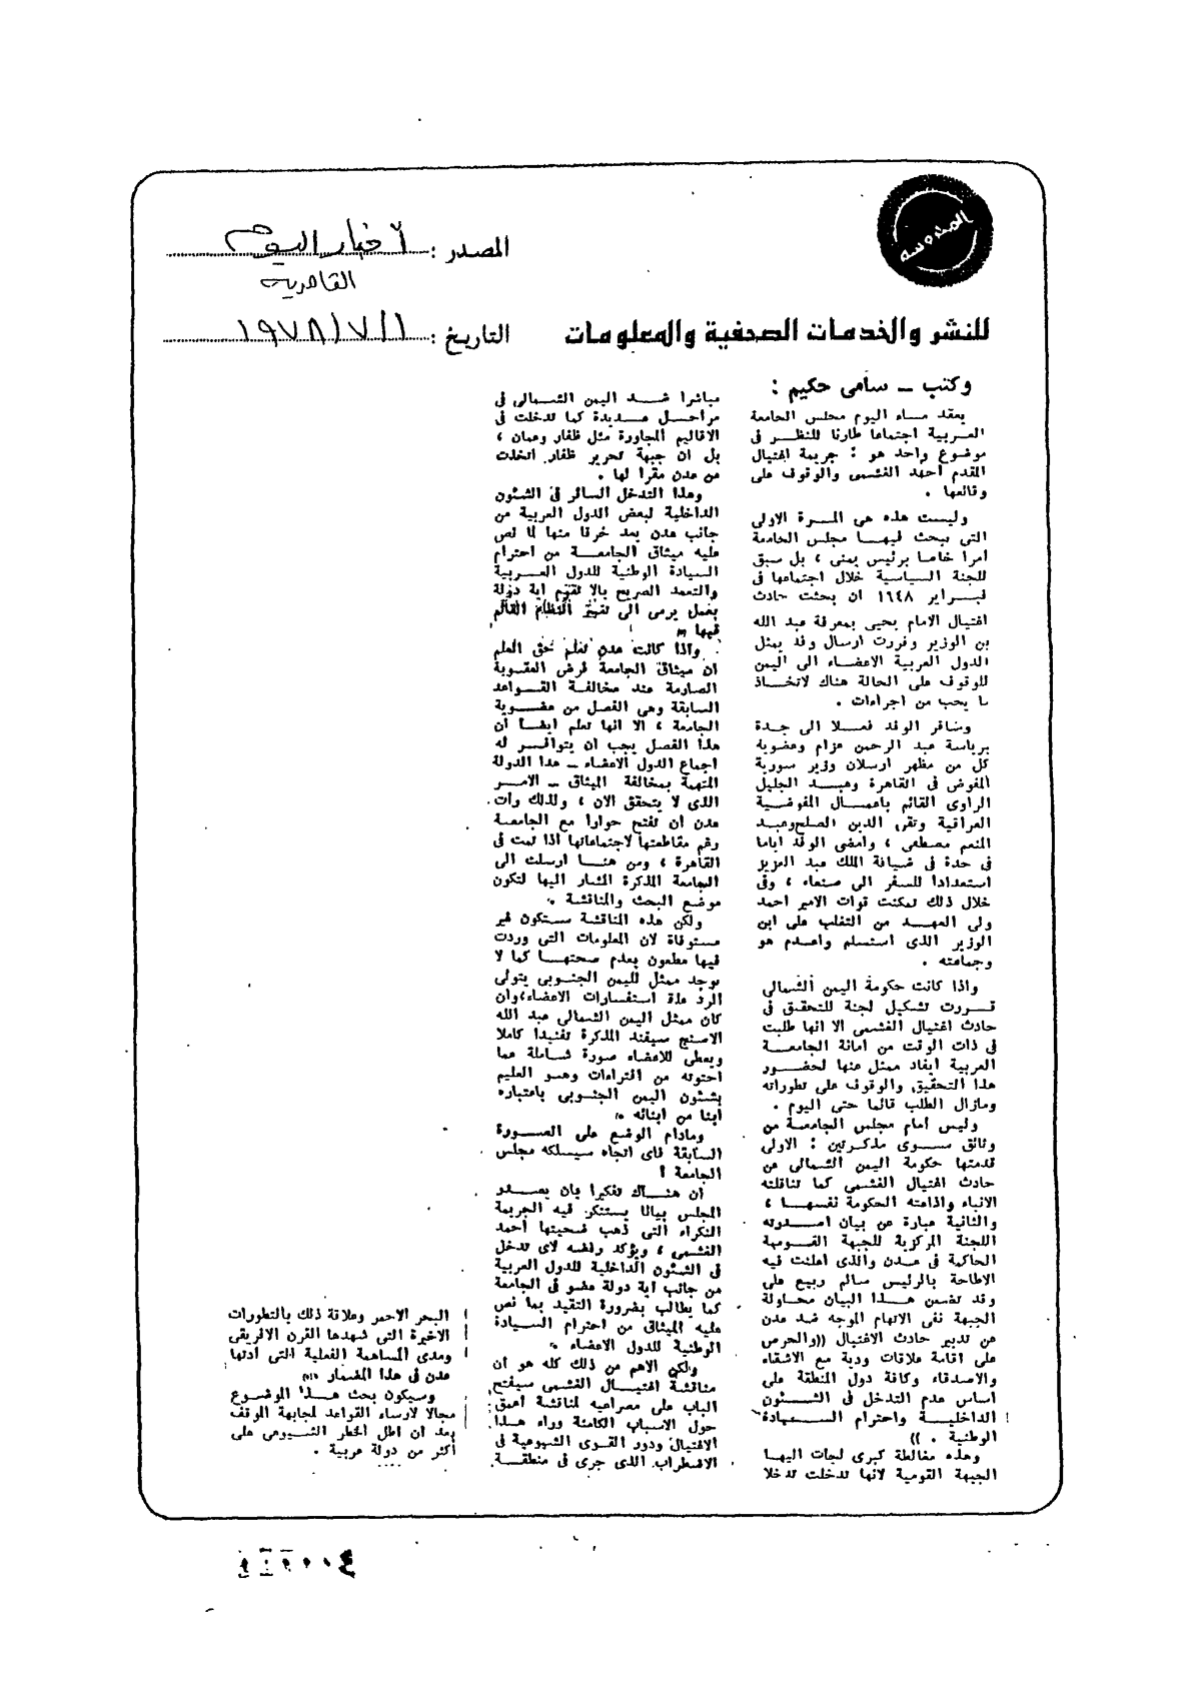 المدروسه
المصدر : أخبار اليوم
القاهرية
التاريخ : ١٩٧٨/٧/١
للنشر والخدمات الصحفية والمعلومات
وكتب ــ سامى حكيم :
يعقد مساء اليوم مجلس الجامعة
العربية اجتماعا طارئا للنظر فى
موضوع واحد هو : جريمة اغتيال
المقدم احمد الغشمى والوقوف على
وقائعها .
وليست هذه هى المرة الاولى
التى يبحث فيها مجلس الجامعة
امرا خاصا برئيس يمنى ، بل سبق
للجنة السياسية خلال اجتماعها فى
فبراير ١٦٤٨ ان بحثت حادث
اغتيال الامام يحيى بمعرفة عبد الله
بن الوزير وقررت ارسال وفد يمثل
الدول العربية الاعضاء الى اليمن
للوقوف على الحالة هناك لاتخاذ
ما يجب من اجراءات .
وسافر الوفد فعلا الى جدة
برياسة عبد الرحمن عزام وعضوية
كل من مظهر ارسلان وزير سورية
المفوض فى القاهرة وعبد الجليل
الراوى القائم باعمال المفوضية
العراقية وتقى الدين الصلح وعبد
المنعم مصطفى ، وامضى الوفد اياما
فى جدة فى ضيافة الملك عبد العزيز
استعدادا للسفر الى صنعاء ، وفى
خلال ذلك تمكنت قوات الامير احمد
ولى العهد من التغلب على ابن
الوزير الذى استسلم واعدم هو
وجماعته .
واذا كانت حكومة اليمن الشمالى
قررت تشكيل لجنة للتحقيق فى
حادث اغتيال الغشمى الا انها طلبت
فى ذات الوقت من امانة الجامعة
العربية ايفاد ممثل عنها لحضور
هذا التحقيق والوقوف على تطوراته
ومازال الطلب قائما حتى اليوم .
وليس امام مجلس الجامعة من
وثائق سوى مذكرتين : الاولى
قدمتها حكومة اليمن الشمالى عن
حادث اغتيال الغشمى كما تناقلته
الانباء واذاعته الحكومة نفسها ،
والثانية عبارة عن بيان اصدرته
اللجنة المركزية للجبهة القومية
الحاكمة فى عدن والذى اعلنت فيه
الاطاحة بالرئيس سالم ربيع على
وقد تضمن هذا البيان محاولة
الجبهة نفى الاتهام الموجه ضد عدن
عن تدبير حادث الاغتيال ((والحرص
على اقامة علاقات ودية مع الاشقاء
والاصدقاء وكافة دول المنطقة على
أساس عدم التدخل فى الشئون
الداخلية واحترام السيادة
الوطنية . ))
وهذه مغالطة كبرى لجات اليها
الجبهة القومية لانها تدخلت تدخلا
مباشرا ضد اليمن الشمالى فى
مراحل عديدة كما تدخلت فى
الاقاليم المجاورة مثل ظفار وعمان ،
بل ان جبهة تحرير ظفار اتخذت
من عدن مقرا لها .
وهذا التدخل السافر فى الشئون
الداخلية لبعض الدول العربية من
جانب عدن يعد خرقا منها لما نص
عليه ميثاق الجامعة من احترام
السيادة الوطنية للدول العربية
والتعهد الصريح بالا تقوم اية دولة
بعمل يرمى الى تغيير النظام القائم
فيها »
واذا كانت عدن تعلم حق العلم
ان ميثاق الجامعة فرض العقوبة
الصارمة عند مخالفة القواعد
السابقة وهى الفصل من عضوية
الجامعة ، الا انها تعلم ايضا أن
هذا الفصل يجب ان يتوافر له
اجماع الدول الاعضاء ــ عدا الدولة
المتهمة بمخالفة الميثاق ــ الامر
الذى لا يتحقق الان ، ولذلك رات
عدن ان تفتح حوارا مع الجامعة
رغم مقاطعتها لاجتماعاتها اذا تمت فى
القاهرة ، ومن هنا ارسلت الى
الجامعة المذكرة المشار اليها لتكون
موضع البحث والمناقشة .
ولكن هذه المناقشة ستكون غير
مستوفاة لان المعلومات التى وردت
فيها مطعون بعدم صحتها كما لا
يوجد ممثل لليمن الجنوبى يتولى
الرد على استفسارات الاعضاء،وان
كان ممثل اليمن الشمالى عبد الله
الاصنج سيفند المذكرة تفنيدا كاملا
ويعطى للاعضاء صورة شاملة عما
احتوته من افتراءات وهو العليم
بشئون اليمن الجنوبى باعتباره
ابنا من ابنائه .
ومادام الوضع على الصورة
السابقة فاى اتجاه سيسلكه مجلس
الجامعة ؟
ان هناك تفكيرا بان يصدر
المجلس بيانا يستنكر فيه الجريمة
النكراء التى ذهب ضحيتها أحمد
الغشمى ، ويؤكد رفضه لاى تدخل
فى الشئون الداخلية للدول العربية
من جانب اية دولة عضو فى الجامعة
كما يطالب بضرورة التقيد بما نص
عليه الميثاق من احترام السيادة
الوطنية للدول الاعضاء .
ولكن الاهم من ذلك كله هو ان
مناقشة اغتيال الغشمى سيفتح
الباب على مصراعيه لمناقشة اعمق
حول الاسباب الكامنة وراء هذا
الاغتيال ودور القوى الشيوعية فى
الاضطراب الذى جرى فى منطقة
البحر الاحمر وعلاقة ذلك بالتطورات
الاخيرة التى شهدها القرن الافريقى
ومدى المساهمة الفعلية التى ادتها
عدن فى هذا المضمار .
وسيكون بحث هذا الموضوع
مجالا لارساء القواعد لمجابهة الموقف
بعد ان اطل الخطر الشيوعى على
أكثر من دولة عربية .